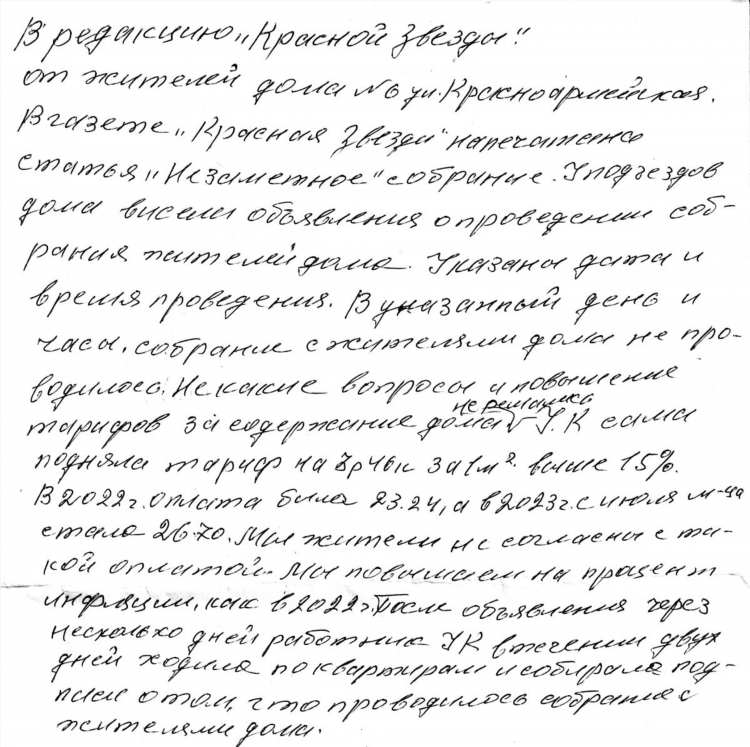 В редакцию „Красной Звезды".
от жителей дома №6 ул. Красноармейская.
В газете „Красная Звезда" напечатана
статья „Незаметное" собрание. У подъездов
дома висели объявления о проведении соб-
рания жителей дома. Указаны дата и
время проведения. В указанный день и
часы, собрание с жителями дома не про-
водилось. Некакие вопросы и повышение
не решались
тарифов за содержание дома У.К сама
подняла тариф на 3р46к за 1м². выше 15%.
В 2022г. оплата была 23.24, а в 2023г. с июля м-ца
стала 26.70. Мы жители не согласны с та-
кой оплатой. Мы повышаем на процент
инфляции, как в 2022г. После объявления через
несколько дней работник УК втечении двух
дней ходила по квартирам и собирала под-
писи о том, что проводилось собрание с
жителями дома.